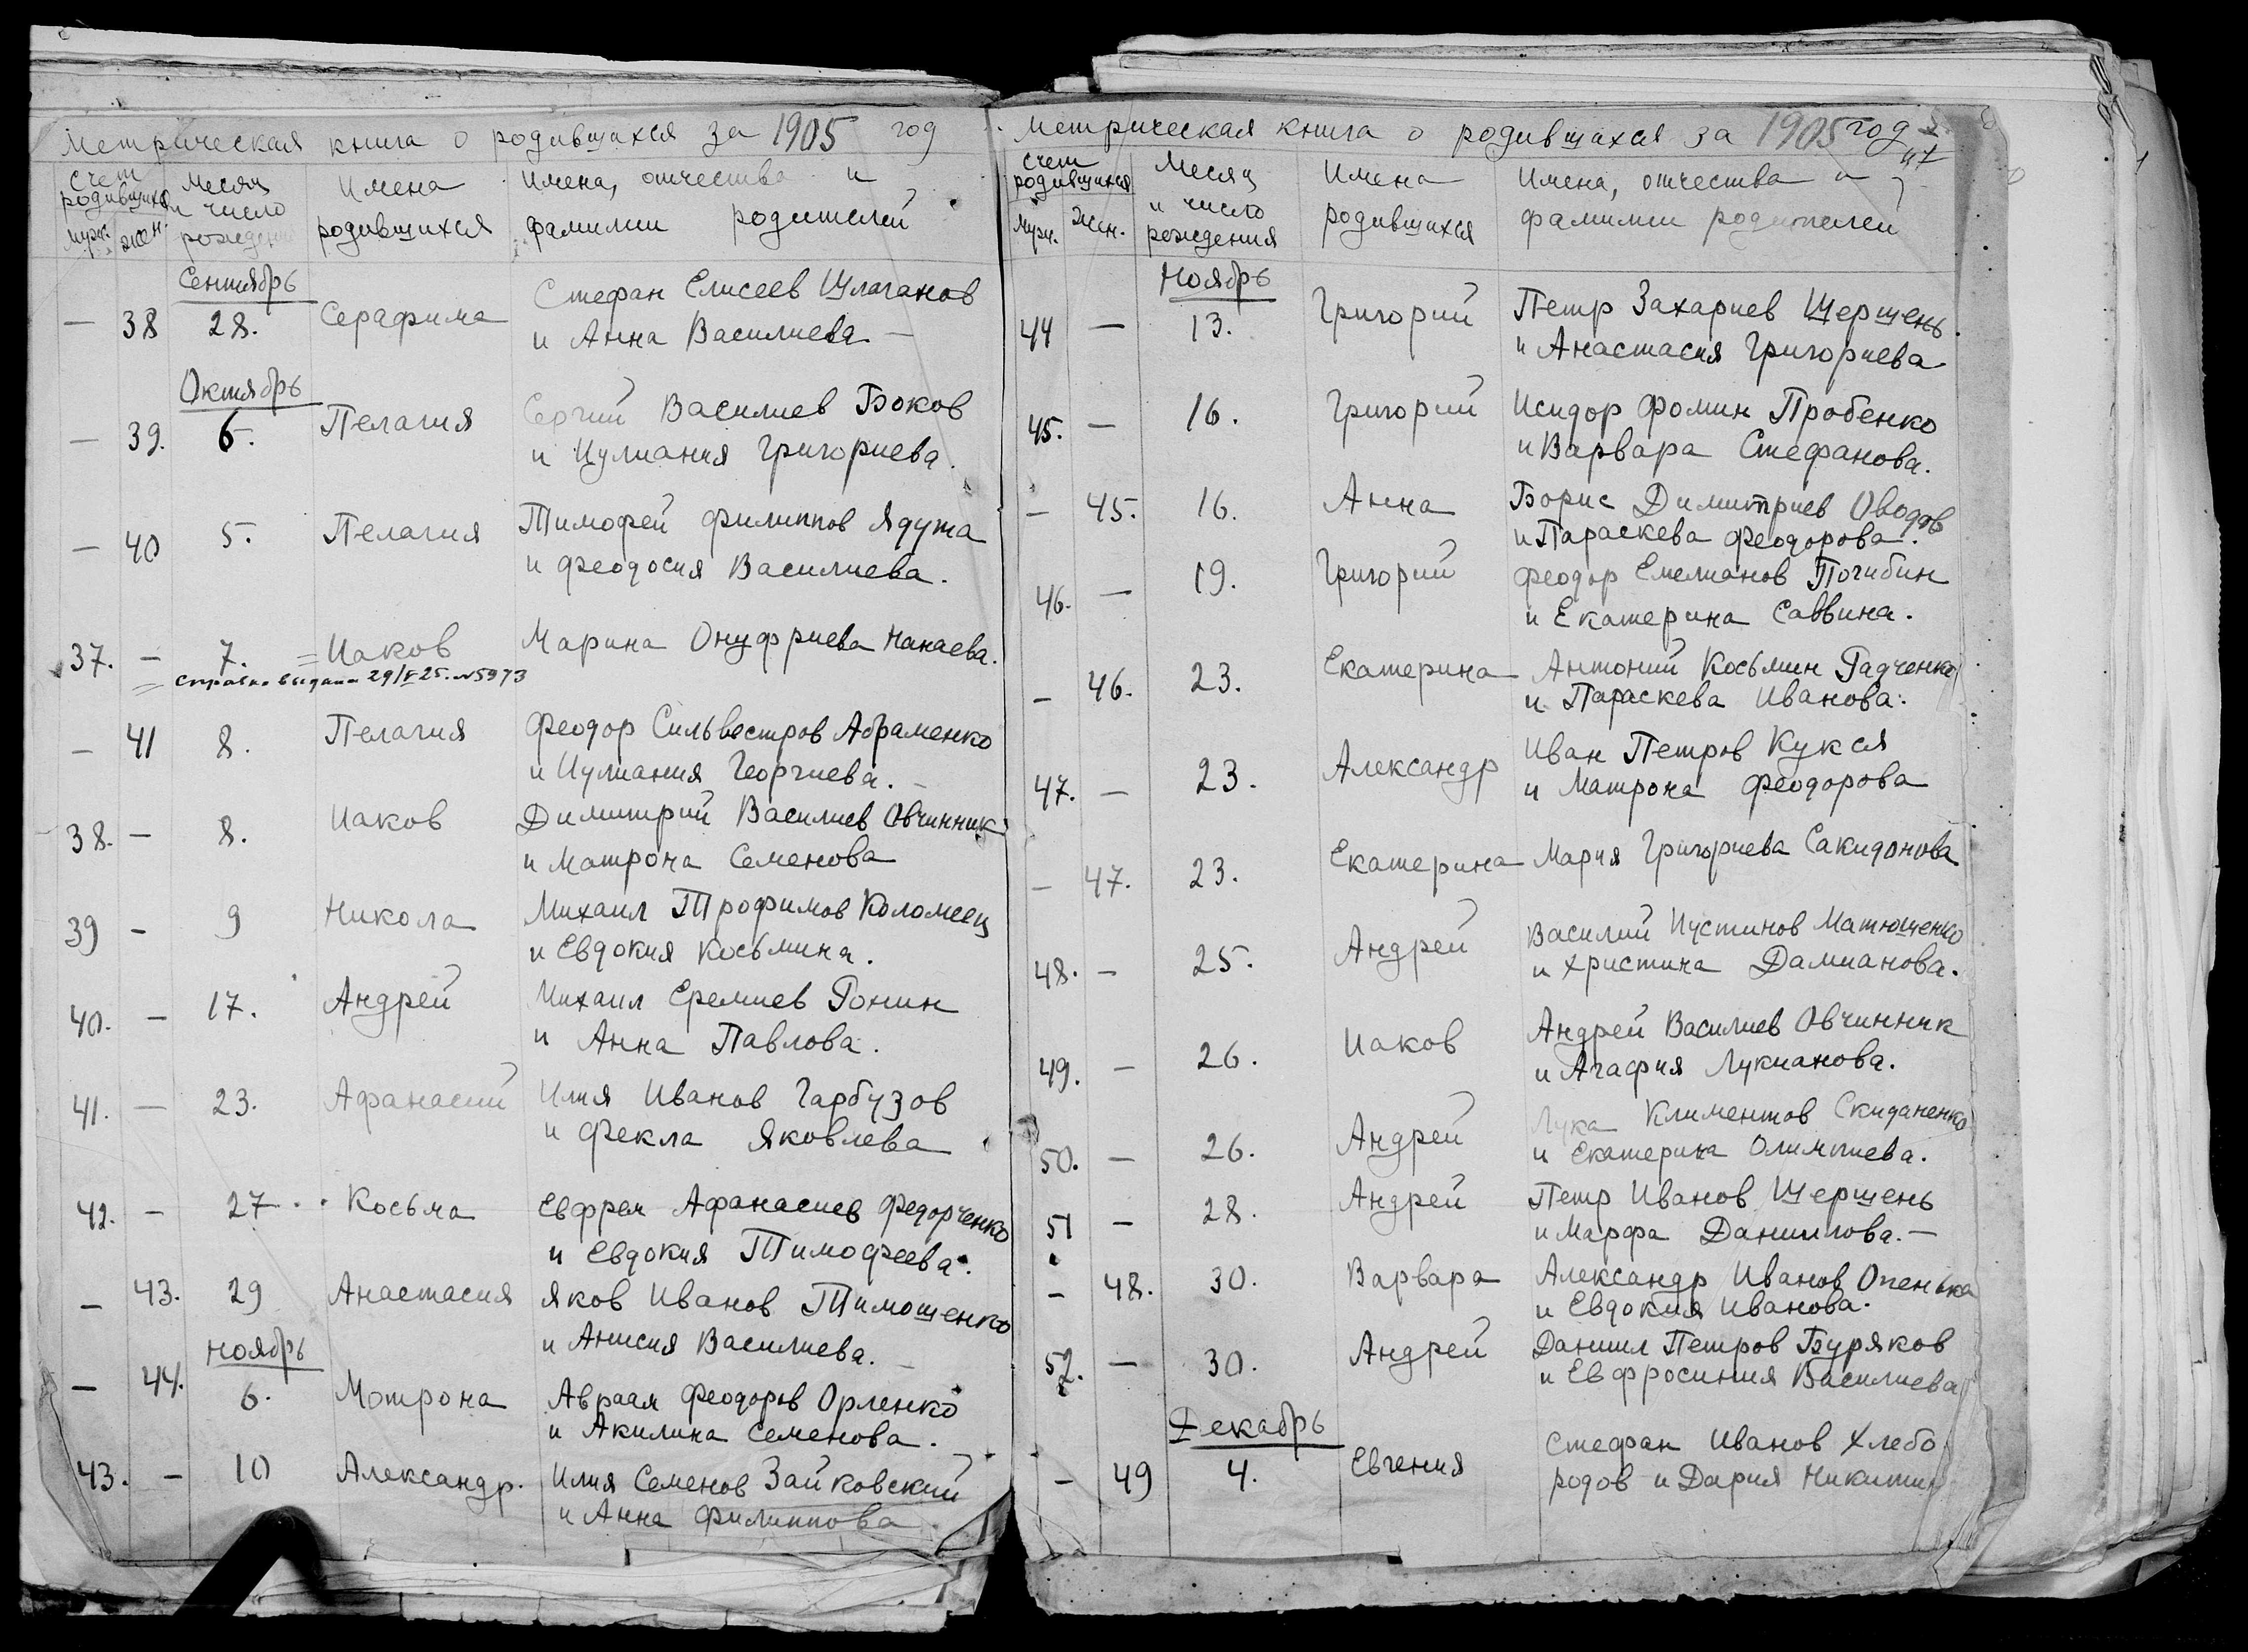 Метрическая книга о родившихся за 1905 год
Счет родившихся
Месяц и число рождения
Имена родившихся
Имена, отчества и фамилии родителей
Муж. Жен.
Сентябрь
— 38 28. Серафима Стефан Елисеев Шлаганов
и Анна Василиева —
Октябрь
— 39. 6. Пелагия Сергий Василиев Боков
и Иулиания Григориева.
— 40 5. Пелагия Тимофей Филиппов Ядута
и Феодосия Василиева.
37. — 7. Иаков Марина Онуфриева Нанаева.
Справка выдана 29/V 25. №5973
— 41 8. Пелагия Феодор Сильвестров Абраменко
и Иулиания Георгиева. —
38. — 8. Иаков Димитрий Василиев Овчинник
и Матрона Семенова
39 — 9 Никола Михаил Трофимов Коломеец
и Евдокия Косьмина.
40. — 17. Андрей Михаил Еремиев Ронин
и Анна Павлова.
41. — 23. Афанасий Илия Иванов Гарбузов
и Фекла Яковлева
42. — 27. Косьма Евфрем Афанасиев Федорченко
и Евдокия Тимофеева.
— 43. 29 Анастасия Яков Иванов Тимошенко
и Анисия Василиева. —
Ноябрь
— 44. 6. Матрона Авраам Феодоров Орленко
и Акилина Семенова. —
43. — 10 Александр. Илия Семенов Зайковский
и Анна Филиппова
Метрическая книга о родившихся за 1905 год
Счет родившихся
Месяц и число рождения
Имена родившихся
Имена, отчества и фамилии родителей
Муж. Жен.
Ноябрь
44 — 13. Григорий Петр Захариев Шершень
и Анастасия Григориева
45. — 16. Григорий Исидор Фомин Пробенко
и Варвара Стефанова.
— 45. 16. Анна Борис Димитриев Оводов
и Параскева Феодорова.
46. — 19. Григорий Феодор Емелианов Погибин
и Екатерина Саввина.
— 46. 23. Екатерина Антоний Косьмин Радченко
и Параскева Иванова.
47. — 23. Александр Иван Петров Кукся
и Матрона Феодорова
— 47. 23. Екатерина Мария Григориева Сакидонова
48. — 25. Андрей Василий Иустинов Матюшенко
и Христина Дамианова.
49. — 26. Иаков Андрей Василиев Овчинник
и Агафия Лукианова.
50. — 26. Андрей Лука Климентов Скиданенко
и Екатерина Олимпиева.
51 — 28. Андрей Петр Иванов Шершень
и Марфа Даниилова. —
— 48. 30. Варвара Александр Иванов Опенька
и Евдокия Иванова.
52. — 30. Андрей Даниил Петров Буряков
и Евфросиния Василиева
Декабрь
— 49 4. Евгения Стефан Иванов Хлебо
родов и Дария Никитин